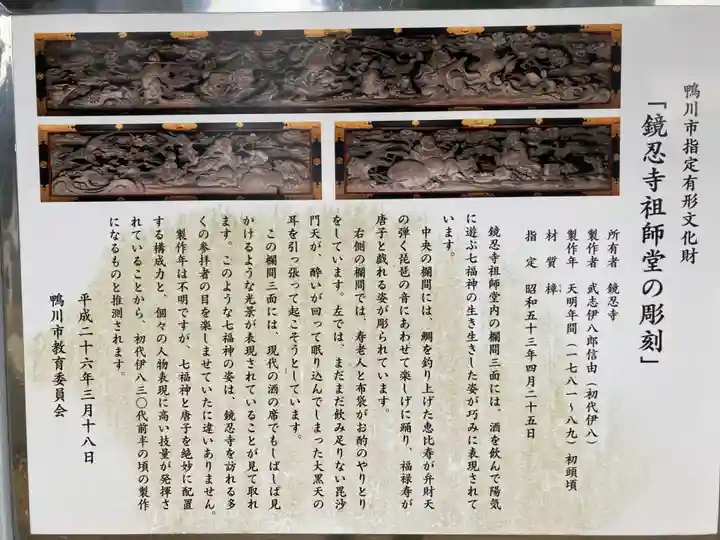 鴨川市指定有形文化財
「鏡忍寺祖師堂の彫刻」
所有者　鏡忍寺
製作者　武志伊八郎信由（初代伊八）
製作年　天明年間（一七八一〜八九）初頭頃
材　質　樟
指　定　昭和五十三年四月二十五日
鏡忍寺祖師堂内の欄間三面には、酒を飲んで陽気
に遊ぶ七福神の生き生きした姿が巧みに表現されて
います。
中央の欄間には、鯛を釣り上げた恵比寿が弁財天
の弾く琵琶の音にあわせて楽しげに踊り、福禄寿が
唐子と戯れる姿が彫られています。
右側の欄間では、寿老人と布袋がお酌のやりとり
をしています。左では、まだまだ飲み足りない毘沙
門天が、酔いが回って眠り込んでしまった大黒天の
耳を引っ張って起こそうとしています。
この欄間三面には、現代の酒の席でもしばしば見
かけるような光景が表現されていることが見て取れ
ます。このような七福神の姿は、鏡忍寺を訪れる多
くの参拝者の目を楽しませていたに違いありません。
製作年は不明ですが、七福神と唐子を絶妙に配置
する構成力と、個々の人物表現に高い技量が発揮さ
れていることから、初代伊八三〇代前半の頃の製作
になるものと推測されます。
平成二十六年三月十八日
鴨川市教育委員会